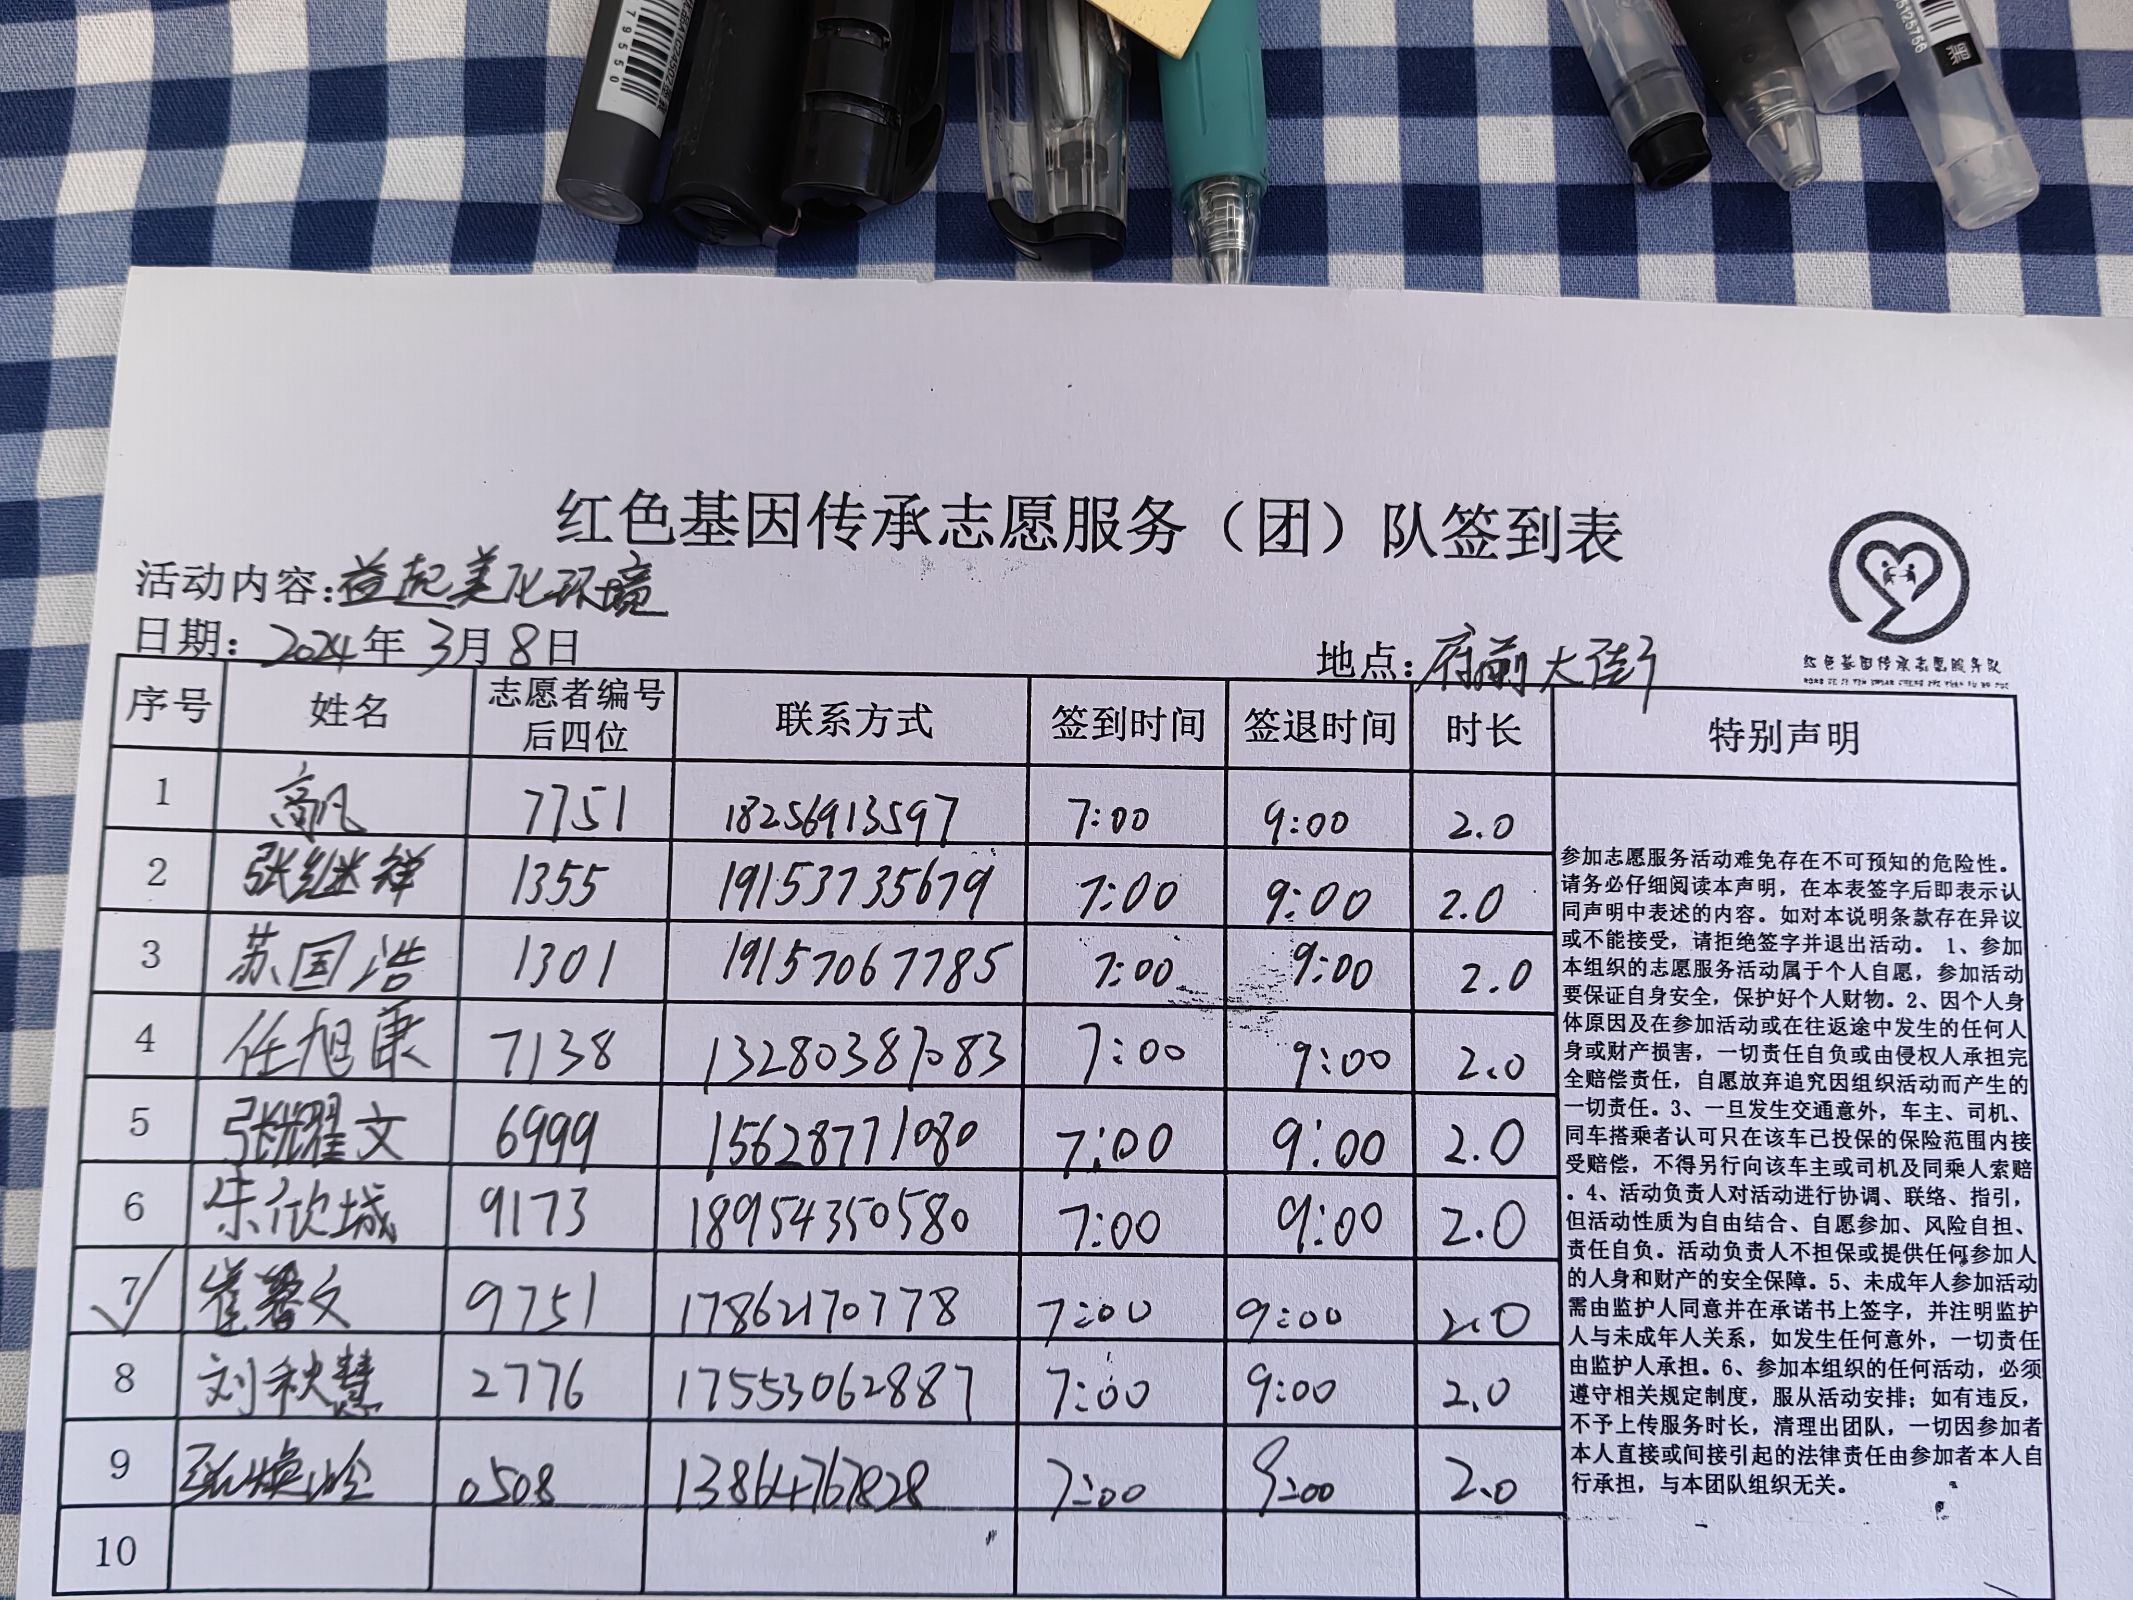 79550
5125756
黑
红色基因传承志愿服务（团）队签到表
活动内容：益起美化环境
日期：2024年3月8日
地点：府前大街
红色基因传承志愿服务队
序号 姓名 志愿者编号后四位 联系方式 签到时间 签退时间 时长 特别声明
1 高凡 7751 18256913597 7:00 9:00 2.0
2 张继祥 1355 19153735679 7:00 9:00 2.0
3 苏国浩 1301 19157067785 7:00 9:00 2.0
4 任旭康 7138 13280387083 7:00 9:00 2.0
5 张耀文 6999 15628771080 7:00 9:00 2.0
6 朱欣城 9173 18954350580 7:00 9:00 2.0
7 崔馨文 9751 17862170778 7:00 9:00 2.0
8 刘秋慧 2776 17553062887 7:00 9:00 2.0
9 0508 13864767828 7:00 9:00 2.0
10
参加志愿服务活动难免存在不可预知的危险性。
请务必仔细阅读本声明，在本表签字后即表示认
同声明中表述的内容。如对本说明条款存在异议
或不能接受，请拒绝签字并退出活动。 1、参加
本组织的志愿服务活动属于个人自愿，参加活动
要保证自身安全，保护好个人财物。2、因个人身
体原因及在参加活动或在往返途中发生的任何人
身或财产损害，一切责任自负或由侵权人承担完
全赔偿责任，自愿放弃追究因组织活动而产生的
一切责任。3、一旦发生交通意外，车主、司机、
同车搭乘者认可只在该车已投保的保险范围内接
受赔偿，不得另行向该车主或司机及同乘人索赔
。4、活动负责人对活动进行协调、联络、指引，
但活动性质为自由结合、自愿参加、风险自担、
责任自负。活动负责人不担保或提供任何参加人
的人身和财产的安全保障。5、未成年人参加活动
需由监护人同意并在承诺书上签字，并注明监护
人与未成年人关系，如发生任何意外，一切责任
由监护人承担。6、参加本组织的任何活动，必须
遵守相关规定制度，服从活动安排；如有违反，
不予上传服务时长，清理出团队，一切因参加者
本人直接或间接引起的法律责任由参加者本人自
行承担，与本团队组织无关。